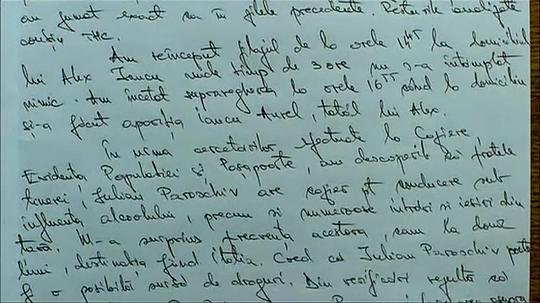 am fumat exact ca în zilele precedente. Petturile analizate
conțin THC.
Am reînceput filajul de la orele 14 la domiciliul
lui Alex Iancu unde timp de 3 ore nu s-a întâmplat
nimic. Am încetat supravegherea la orele 16 când la domiciliu
și-a făcut apariția Iancu Aurel, tatăl lui Alex.
În urma cercetărilor efectuate la Cazier,
Evidența Populației și Pașapoarte, am descoperit că fratele
Iulian Paroschiv are cazier pt conducere sub
influența alcoolului, precum și numeroase intrări și ieșiri din
țară. M-a surprins frecvența acestora, cam la două
luni, destinația fiind Italia. Cred că Iulian Paroschiv poate
fi o posibilă sursă de droguri. Din verificări rezultă că